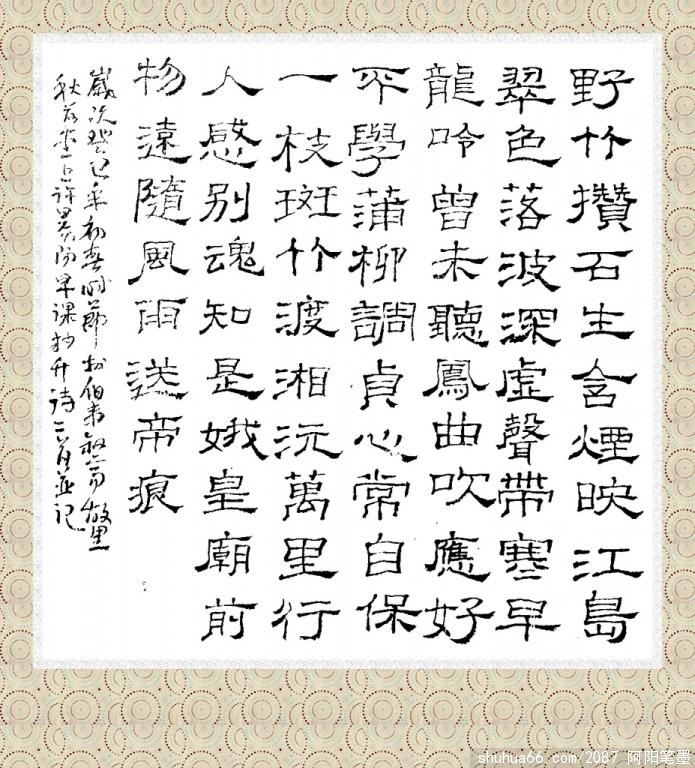 野竹攢石生含煙映江島
翠色落波深虛聲帶寒早
龍吟曾未聽鳳曲吹應好
不學蒲柳調貞心常自保
一枝斑竹渡湘沅萬里行
人感别魂知是娥皇廟前
物遠隨風雨送帝痕
歲次癸巳年初春時節於故里
早課抄竹詩二首並记
shuhua66.com/2087 阿阳笔墨